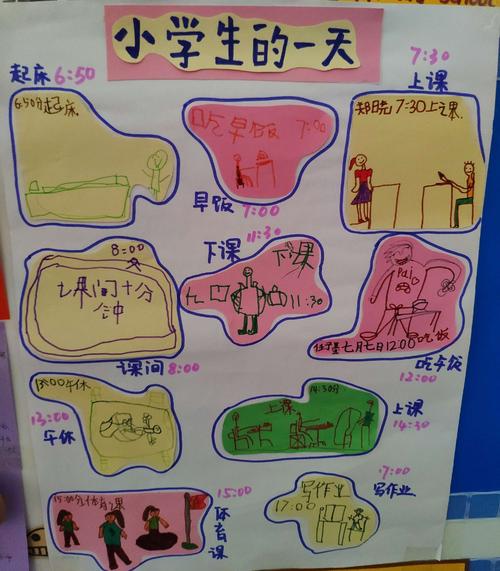 小学生的一天
起床 6:50
6:50分起床
吃早饭 7:00
早饭 7:00
7:30
上课
7:30上课
8:00
课间十分
钟
课间 8:00
11:30
下课
下课
11:30
12:00吃饭
吃午饭
12:00
13:00午休
13:00
午休
14:30分
上课
上课
14:30
15:00分体育课
15:00
体育课
写作业
17:00
17:00
写作业